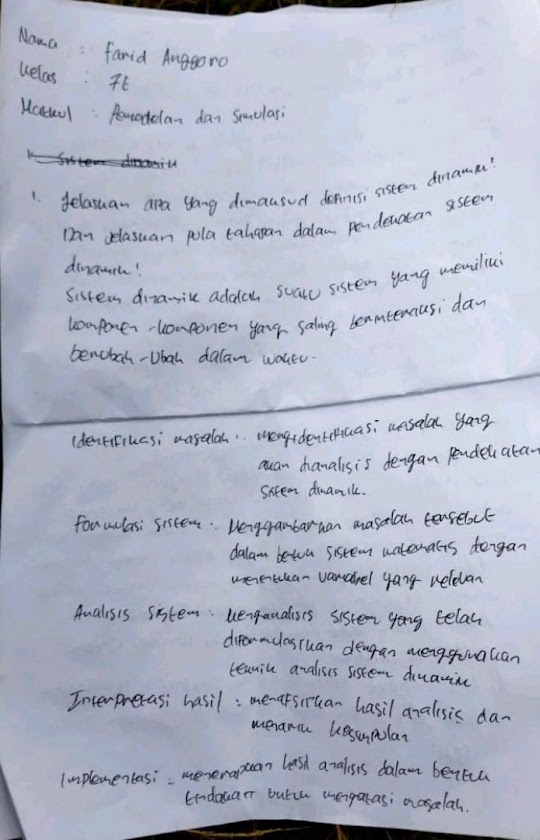 Nama : Farid Anggoro
Kelas : 7E
Matkul : Pemodelan dan Simulasi
1. Sistem dinamik
1. Jelaskan apa yang dimaksud definisi sistem dinamik!
Dan jelaskan pula tahapan dalam pendekatan sistem
dinamik!
Sistem dinamik adalah suatu sistem yang memiliki
komponen-komponen yang saling berinteraksi dan
berubah-ubah dalam waktu.
Identifikasi masalah : mengidentifikasi masalah yang
akan dianalisis dengan pendekatan
sistem dinamik.
Formulasi sistem : Menggambarkan masalah tersebut
dalam bentuk sistem matematis dengan
menentukan variabel yang relevan
Analisis sistem : Menganalisis sistem yang telah
diformulasikan dengan menggunakan
teknik analisis sistem dinamik
Interpretasi hasil : menafsirkan hasil analisis dan
menarik kesimpulan
Implementasi : menerapkan hasil analisis dalam bentuk
tindakan untuk mengatasi masalah.